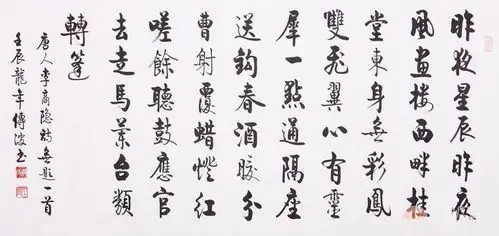 昨夜星辰昨夜
風畫楼西畔桂
堂東身無彩鳳
雙飛翼心有靈
犀一點通隔座
送鈎春酒暖分
曹射覆蜡燈紅
嗟餘聽鼓應官
去走馬蘭台類
轉蓬
唐人李商隐詩無題一首
壬辰龍年傅波书